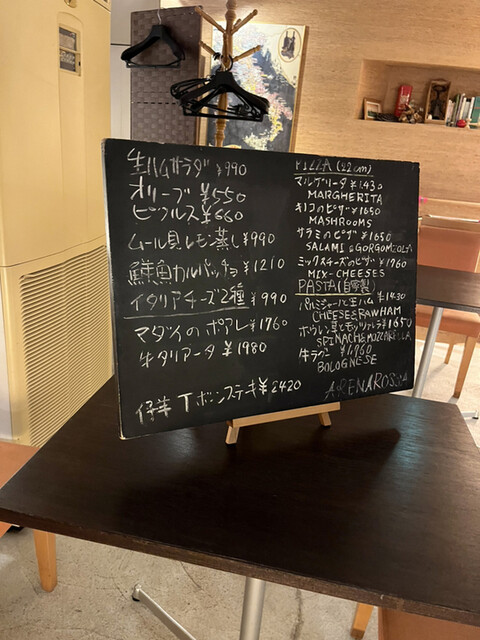 生ハムサラダ ¥990
オリーブ ¥550
ピクルス ¥660
ムール貝レモン蒸し ¥990
鮮魚カルパッチョ ¥1210
イタリアチーズ2種 ¥990
マダイのポアレ ¥1760
牛タリアータ ¥1980
仔羊Tボーンステーキ ¥2420
PIZZA (22cm)
マルゲリータ ¥1430
MARGHERITA
キノコのピザ ¥1650
MASHROOMS
サラミのピザ ¥1650
SALAMI & GORGONZOLA
ミックスチーズのピザ ¥1760
MIX-CHEESES
PASTA (自家製)
パルミジャーノと生ハム ¥1430
CHEESE & RAWHAM
ホウレン草とモッツァレラ ¥1650
SPINACH & MOZZARELLA
牛ラグー ¥1760
BOLOGNESE
ARENAROSSA